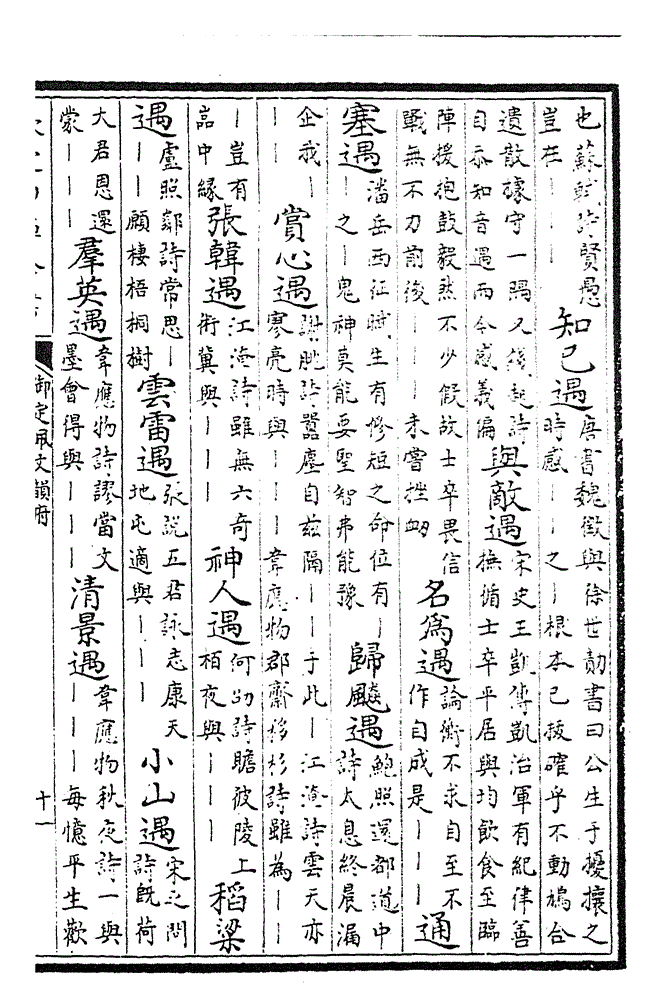 也蘇軾詩賢愚豈在｜｜｜知己遇唐書魏徵與徐世勣書曰公生于擾攘之時感｜｜之｜根本已拔確乎不動鳩合
遺散據守一隅又後起詩自忝知音遇而今感義偏與敵遇宋史王凱傳凱治軍有紀律善撫循士卒平居與均飲食至臨
陣援抱鼓毅然不少假故士卒畏信戰無不力前後｜｜｜未嘗挫衂名為遇論衡不求自至不作自成是｜｜｜通
塞遇潘岳西征賦生有修短之命位有｜｜之｜鬼神莫能要聖智弗能豫歸飈遇鮑照還都道中詩太息終晨漏
企我｜｜｜賞心遇謝朓詩囂塵自兹隔｜｜于此｜江淹詩雲天亦寥亮時與｜｜｜韋應物郡齋移杉詩雖為｜｜
｜豈有嵓中緣張韓遇江淹詩雖無六奇術冀與｜｜｜神人遇何劭詩瞻彼陵上栢夜與｜｜｜稻粱
遇盧照鄰詩常思｜｜願棲梧桐樹雲雷遇張説五君詠志康天地屯適與｜｜｜小山遇宋之問詩既荷
大君恩還蒙｜｜｜羣英遇韋應物詩謬當文墨會得與｜｜｜清景遇韋應物秋夜詩一與｜｜｜每憶平生歡
御定佩文韻府
十一